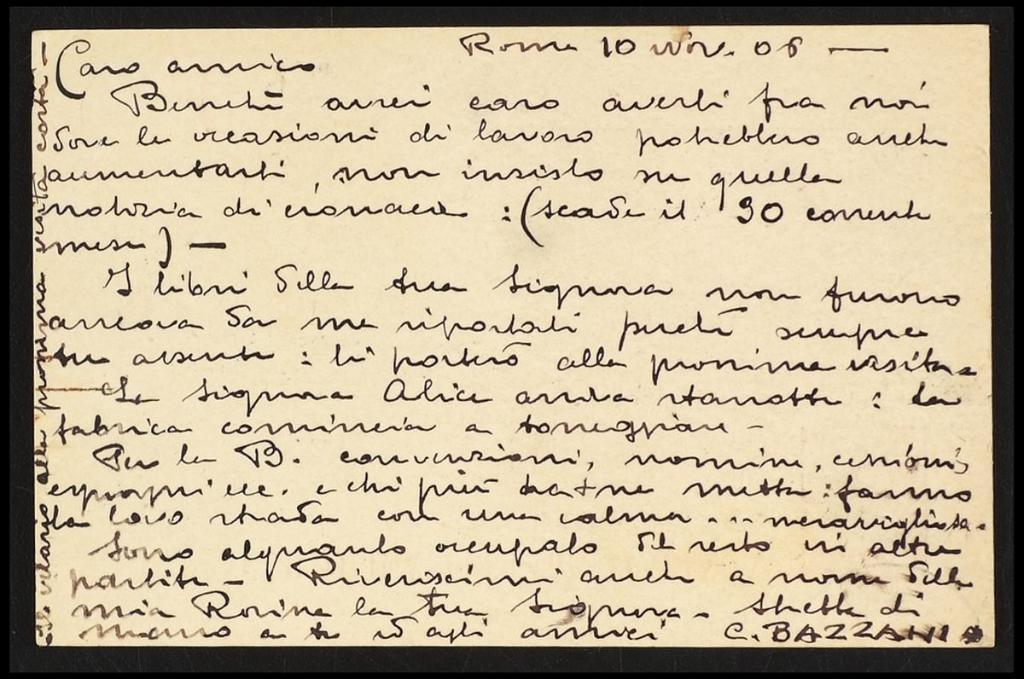 Roma 10 nov. 06 —
Caro amico
Benchè avrei caro averti fra noi
dove le occasioni di lavoro potrebbero anche
aumentarti, non insisto su quella
notizia di cronaca : (scade il 30 corrente
mese) —
I libri della tua Signora non furono
ancora da me riportati perchè sempre
tu assente : li porterò alla prossima visita -
La Signora Alice arriva stanotte : la
fabrica comincia a torreggiare -
Per la B. convenzioni, nomine, cessioni,
espropri ecc. e chi più ha + ne metta : fanno
la loro strada con una calma ... meravigliosa.
Sono alquanto occupato del resto in altre
partite - Riveriscimi anche a nome della
mia Rosina la tua Signora - Stretta di
mano a te ed agli amici C. BAZZANI
alla prossima visita